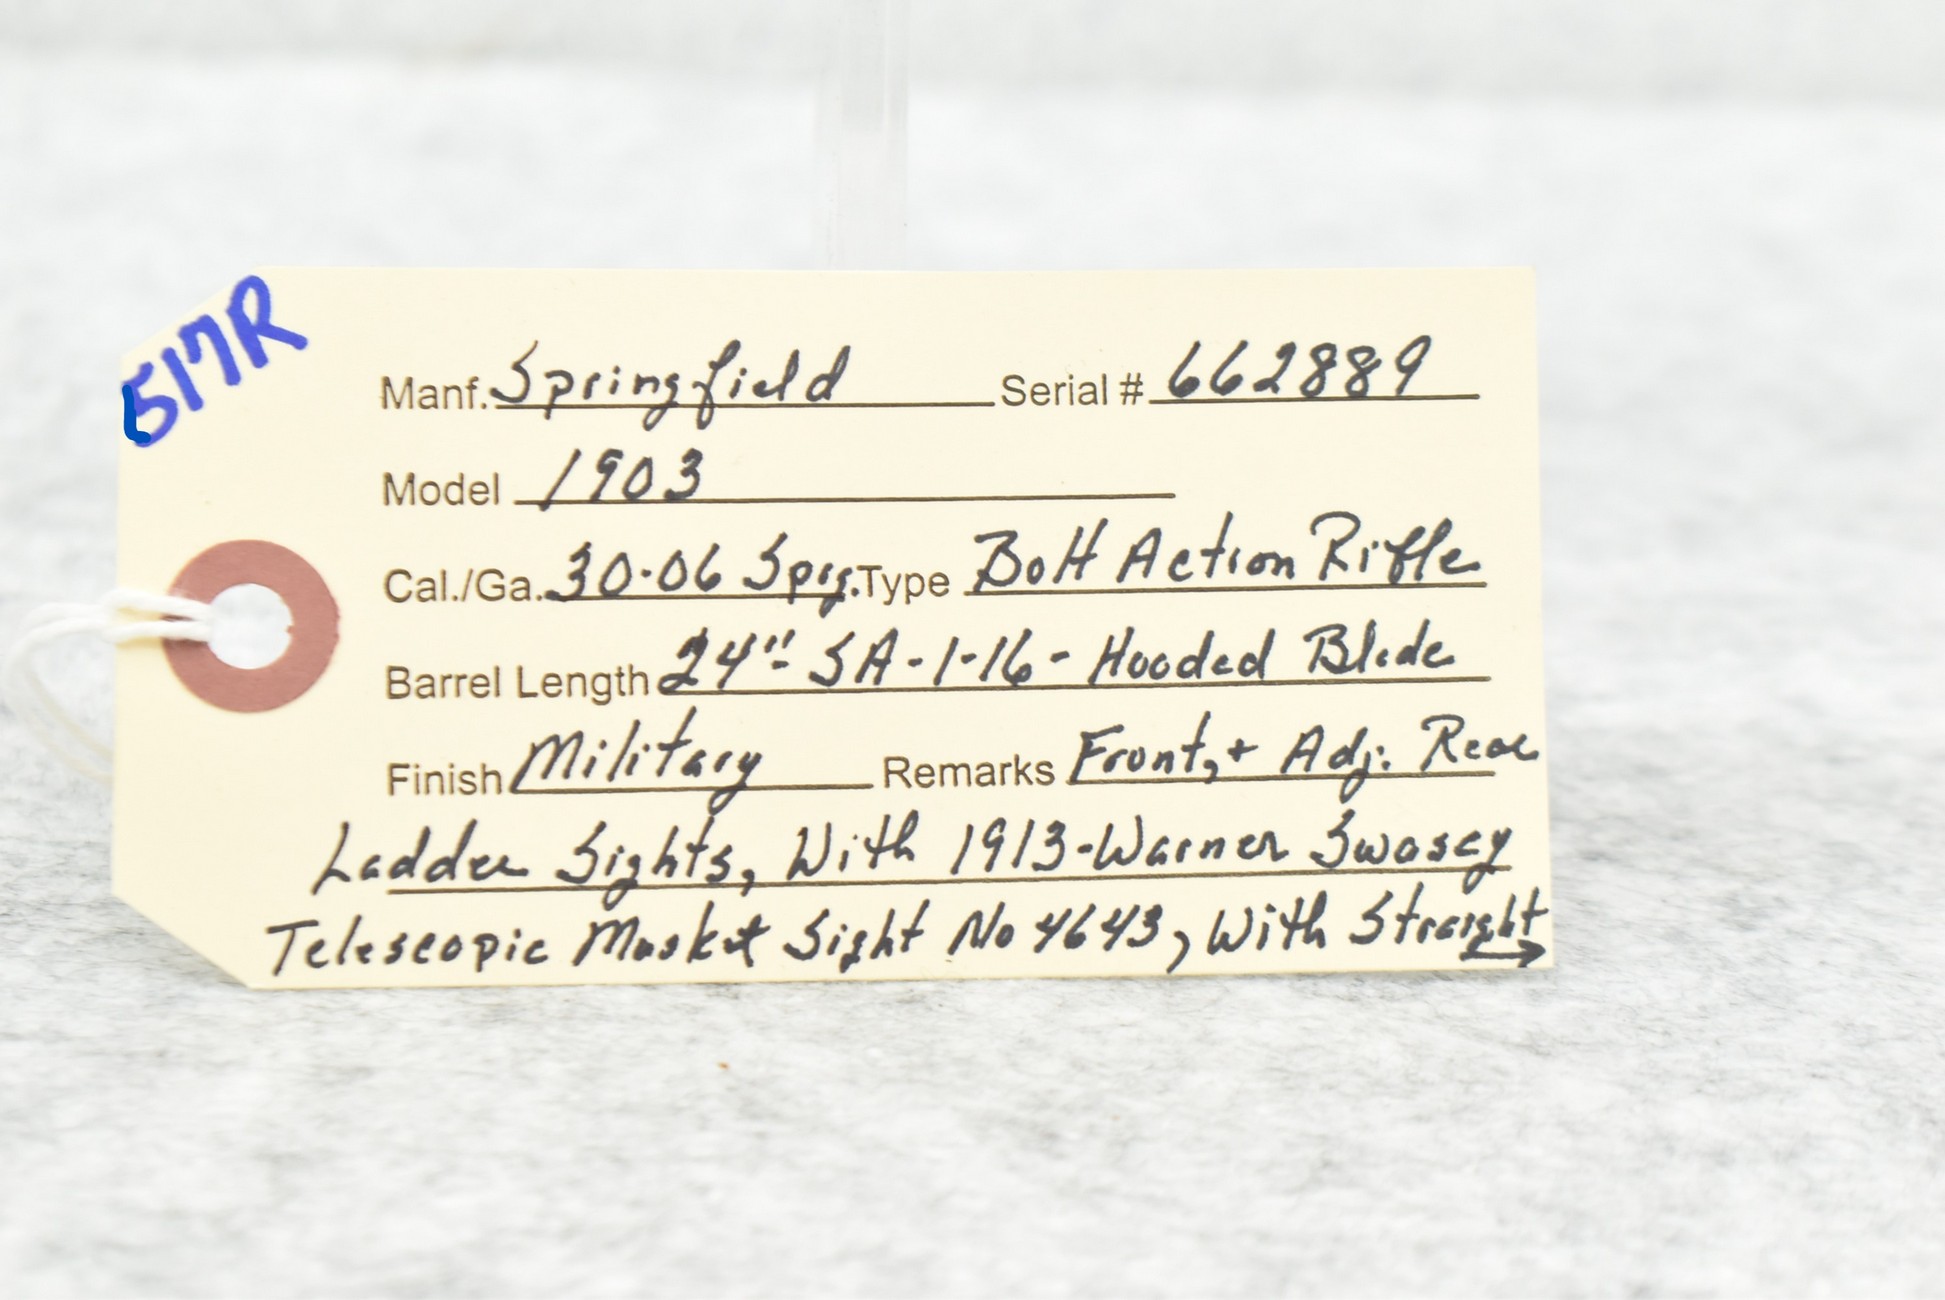 517R
Manf. Springfield Serial # 662889
Model 1903
Cal./Ga. 30-06 Sprg. Type Bolt Action Rifle
Barrel Length 24"- SA-1-16- Hooded Blade
Finish Military Remarks Front, + Adj. Rear
Ladder Sights, With 1913-Warner Swasey
Telescopic Musket Sight No 4643, With Straight →